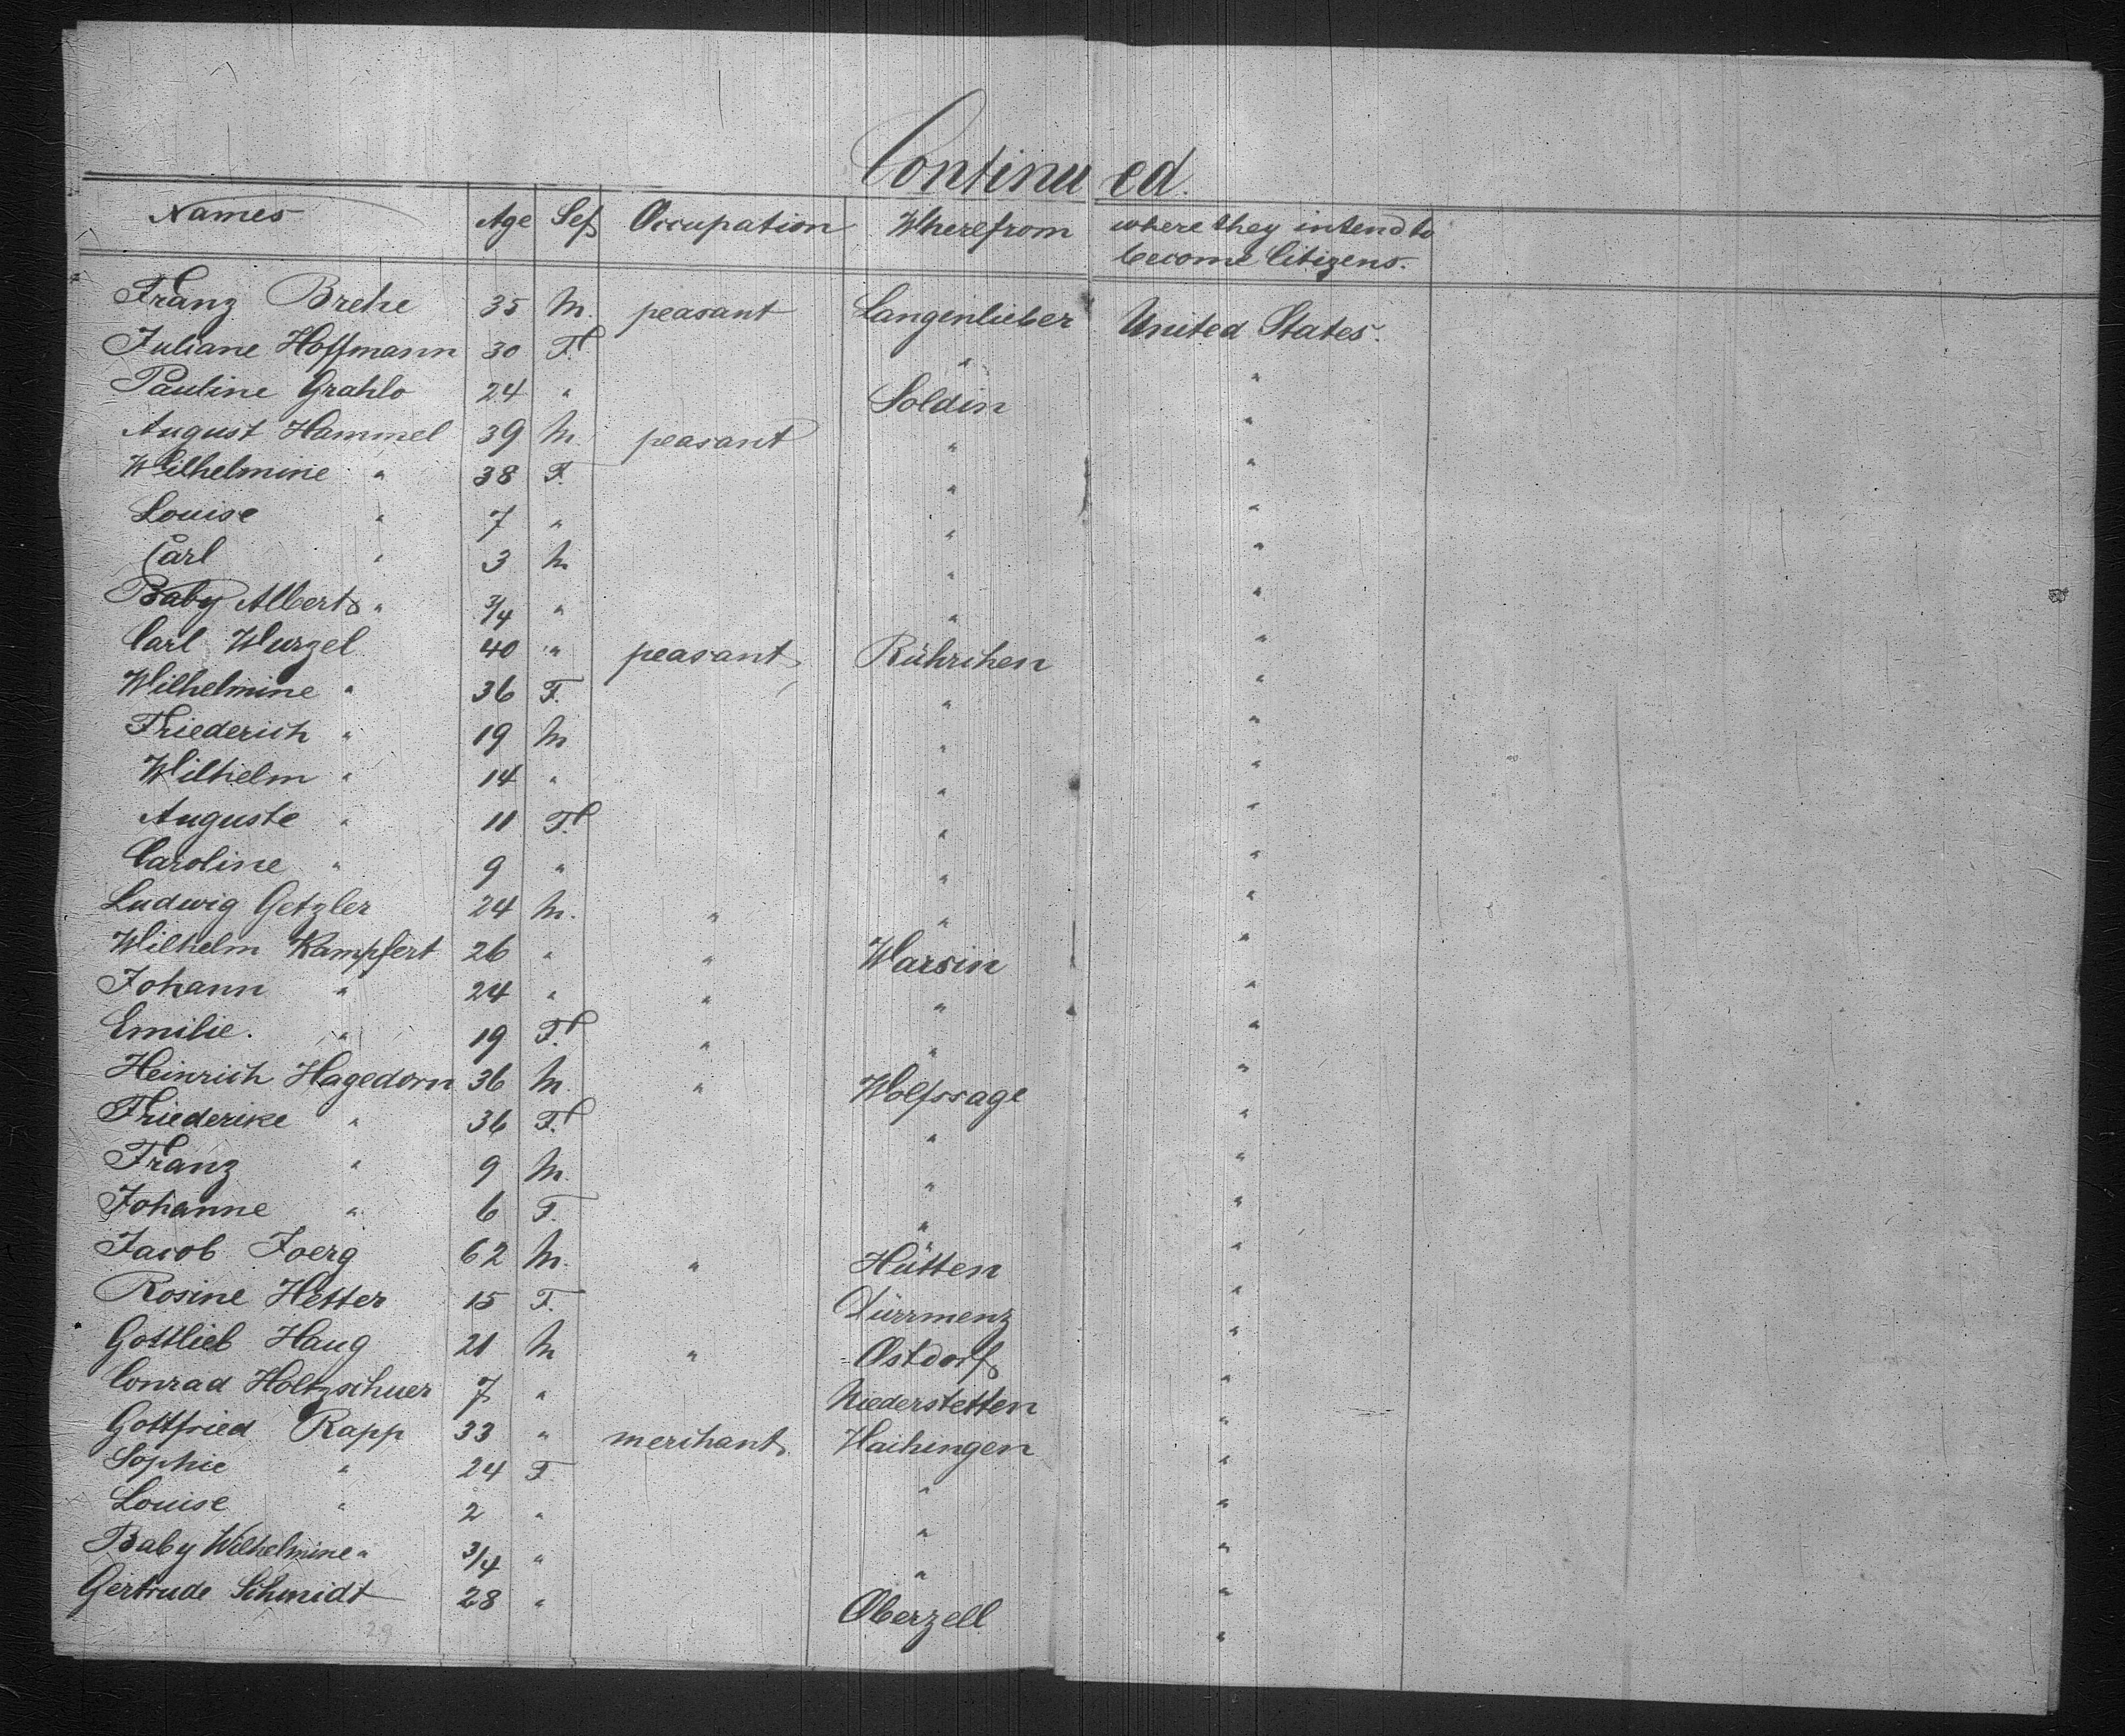 Continued.
Names Age Sex Occupation Wherefrom where they intend to
become Citizens.
Franz Brehe 35 M. peasant Langenlieber United States.
Juliane Hoffmann 30 F. " "
Pauline Grahlo 24 " Soldin "
August Hammel 39 M. peasant " "
Wilhelmine " 38 F. " "
Louise " 7 " " "
Carl " 3 M " "
Baby Albert " 3/4 " " "
Carl Wurzel 40 " peasant Rührchen "
Wilhelmine " 36 F. " "
Friederich " 19 M " "
Wilhelm " 14 " " "
Auguste " 11 F. " "
Caroline " 9 " " "
Ludwig Getzler 24 M. " " "
Wilhelm Kampfert 26 " " Warsin "
Johann " 24 " " " "
Emilie. " 19 F. " " "
Heinrich Hagedorn 36 M. " Wolfssage "
Friederike " 36 F. " "
Franz " 9 M. " "
Johanne " 6 F. " "
Jacob Joerg 62 M. " Hütten "
Rosine Hetter 15 F. Dürrmenz "
Gottlieb Haug 21 M " Ostdorf "
Conrad Holtzschuer 7 " Niederstetten "
Gottfried Rapp 33 " merchant Vaihingen "
Sophie " 24 F. " "
Louise " 2 " " "
Baby Wilhelmine " 3/4 " " "
Gertrude Schmidt 28 " Oberzell "
29